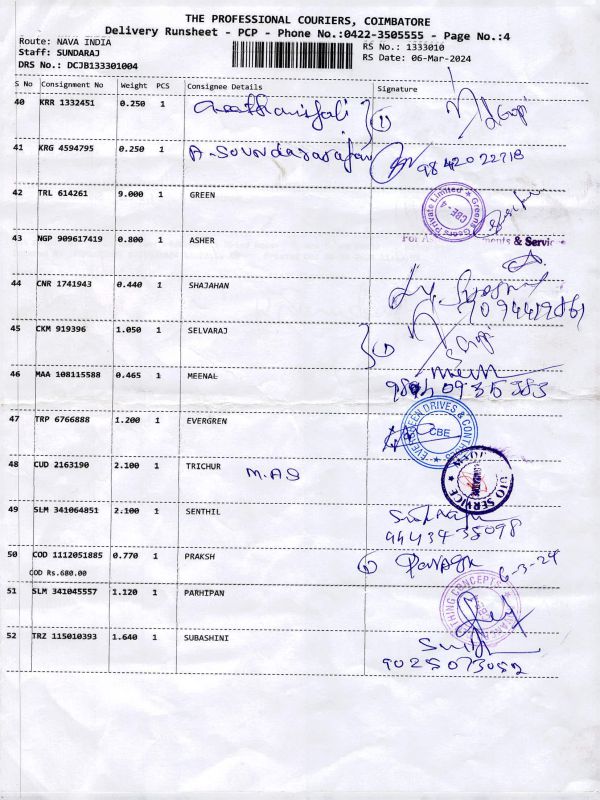 THE PROFESSIONAL COURIERS, COIMBATORE
Delivery Runsheet - PCP - Phone No.:0422-3505555 - Page No.:4
Route: NAVA INDIA
Staff: SUNDARAJ
DRS No.: DCJB133301004
RS No.: 1333010
RS Date: 06-Mar-2024
S No Consignment No Weight PCS Consignee Details Signature
40 KRR 1332451 0.250 1 (1) Gopi
41 KRG 4594795 0.250 1 A. Soundararajan 9842022718
42 TRL 614261 9.000 1 GREEN
Greens Gears Private Limited CBE-4
43 NGP 909617419 0.800 1 ASHER
& Service
44 CNR 1741943 0.440 1 SHAJAHAN
45 CKM 919396 1.050 1 SELVARAJ (1) Gopi
46 MAA 108115588 0.465 1 MEENAL
47 TRP 6766888 1.200 1 EVERGREN
EVERGREEN DRIVES & CONTROLS CBE
48 CUD 2163190 2.100 1 TRICHUR M.AS
AUTO SERVICE
49 SLM 341064851 2.100 1 SENTHIL
99434-35098
50 COD 1112051885 0.770 1 PRAKSH 6-3-24
COD Rs.680.00
51 SLM 341045557 1.120 1 PARHIPAN
THING CONCEPTS
52 TRZ 115010393 1.640 1 SUBASHINI
9025073052